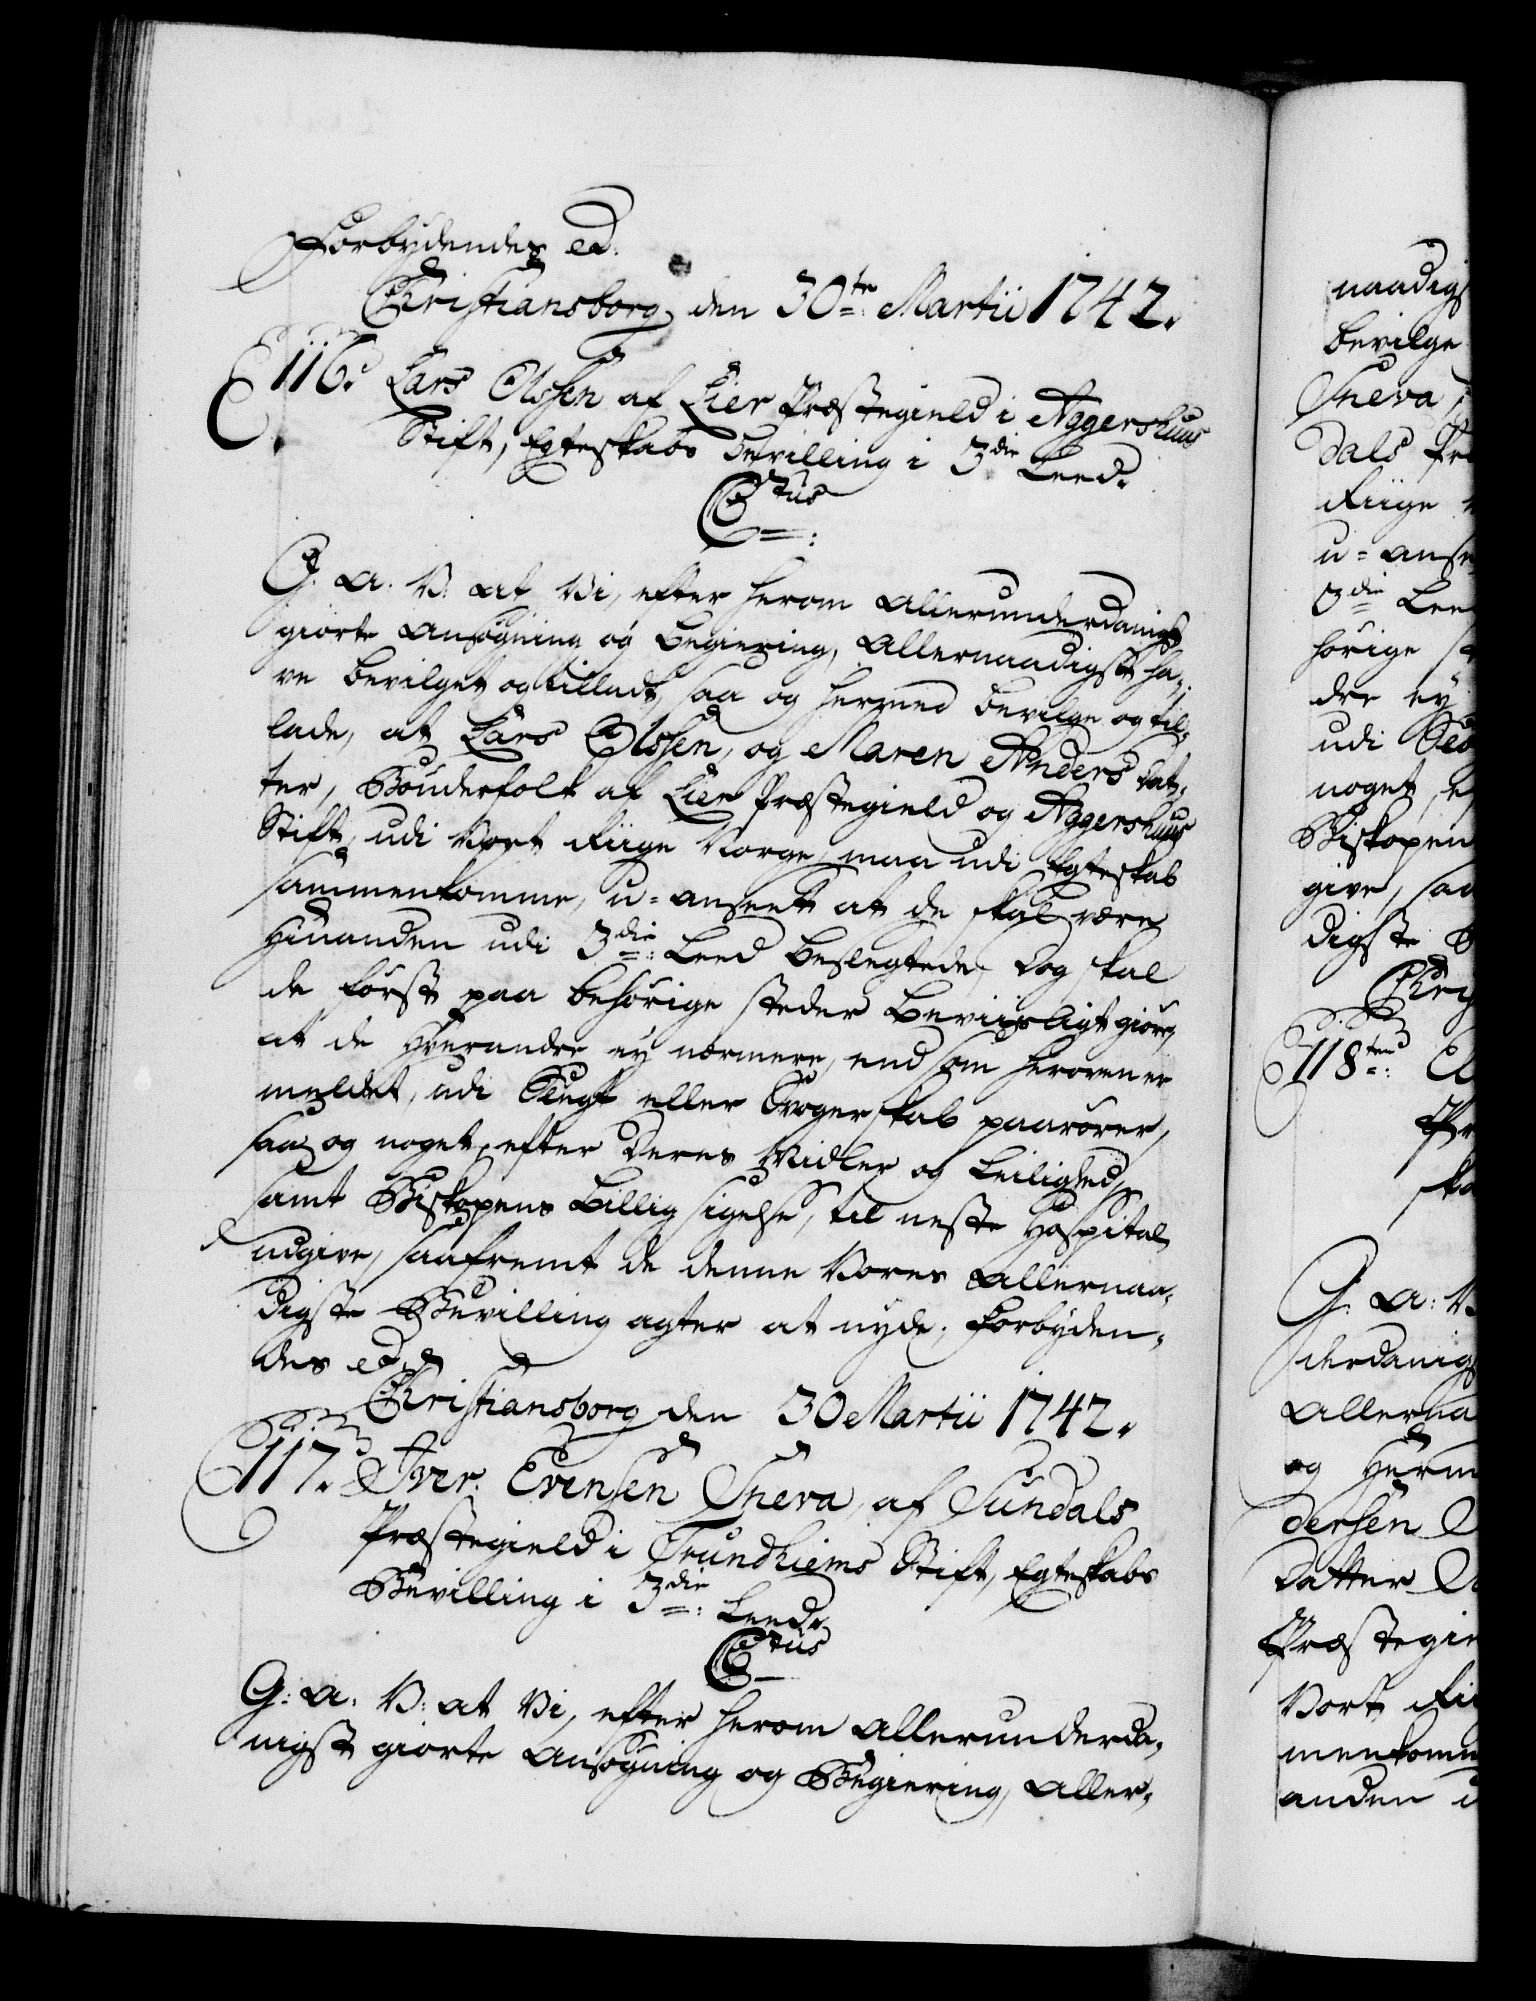 Forbydendes etc.
Christiansborg den 30te Martii 1742.
116. Lars Olssen af Lier Præstegield i Aggershuus
Stift, Egteskabs Bevilling i 3die Leed.
C 6tus
G. A. V. at Vi, efter herom allerunderdanigst
giorte Ansøgning og Begiering, Allernaadigst ha-
ve bevilget og tilladt, saa og hermed bevilge og til-
lade, at Lars Olssen, og Maren Anders Dat-
ter, Bønderfolk af Lier Præstegield og Aggershuus
Stift, udi Vort Riige Norge, maa udi Egteskab
sammenkomme, u-anseet at de skal være
hinanden udi 3die Leed beslegtede, Dog skal
de først paa behørige steder beviisligt giøre,
at de hverandre ey nærmere, end som heroven er
meldet, udi Slegt eller Svogerskab paarører,
saa og noget, efter deres Midler og Leilighed,
samt Biskopens Billigsigelse, til neste Hospital
udgive, saafremt de denne Vores Allernaa-
digste Bevilling agter at nyde, Forbyden-
des etc.
Christiansborg den 30 Martii 1742.
117. Iver Evensen Sneva, af Sundals
Præstegield i Trundhiems Stift, Egteskabs
Bevilling i 3die Leed.
C 6tus
G: A: V: at Vi, efter herom allerunderda-
nigst giorte Ansøgning og Begiering, Aller-
naadigst
bevilge
Sneva,
Dals Præ
Riige
u-anse
3die Lee
hørige st
dre ey
udi Sle
noget, e
Biskopen
give, saa
digste B
Chri
118ten El
Pr
ska
G: A: V
derdanigs
Allerna
og Herm
dersen
Datter
Præstegie
Vort Rii
menkomm
anden u